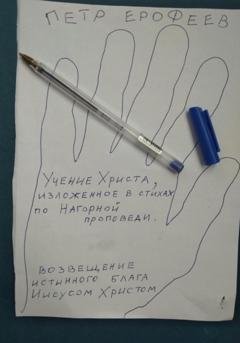 ПЕТР ЕРОФЕЕВ
Учение Христа,
изложенное в стихах
по Нагорной
проповеди.
Возвещение
истинного блага
Иисусом Христом